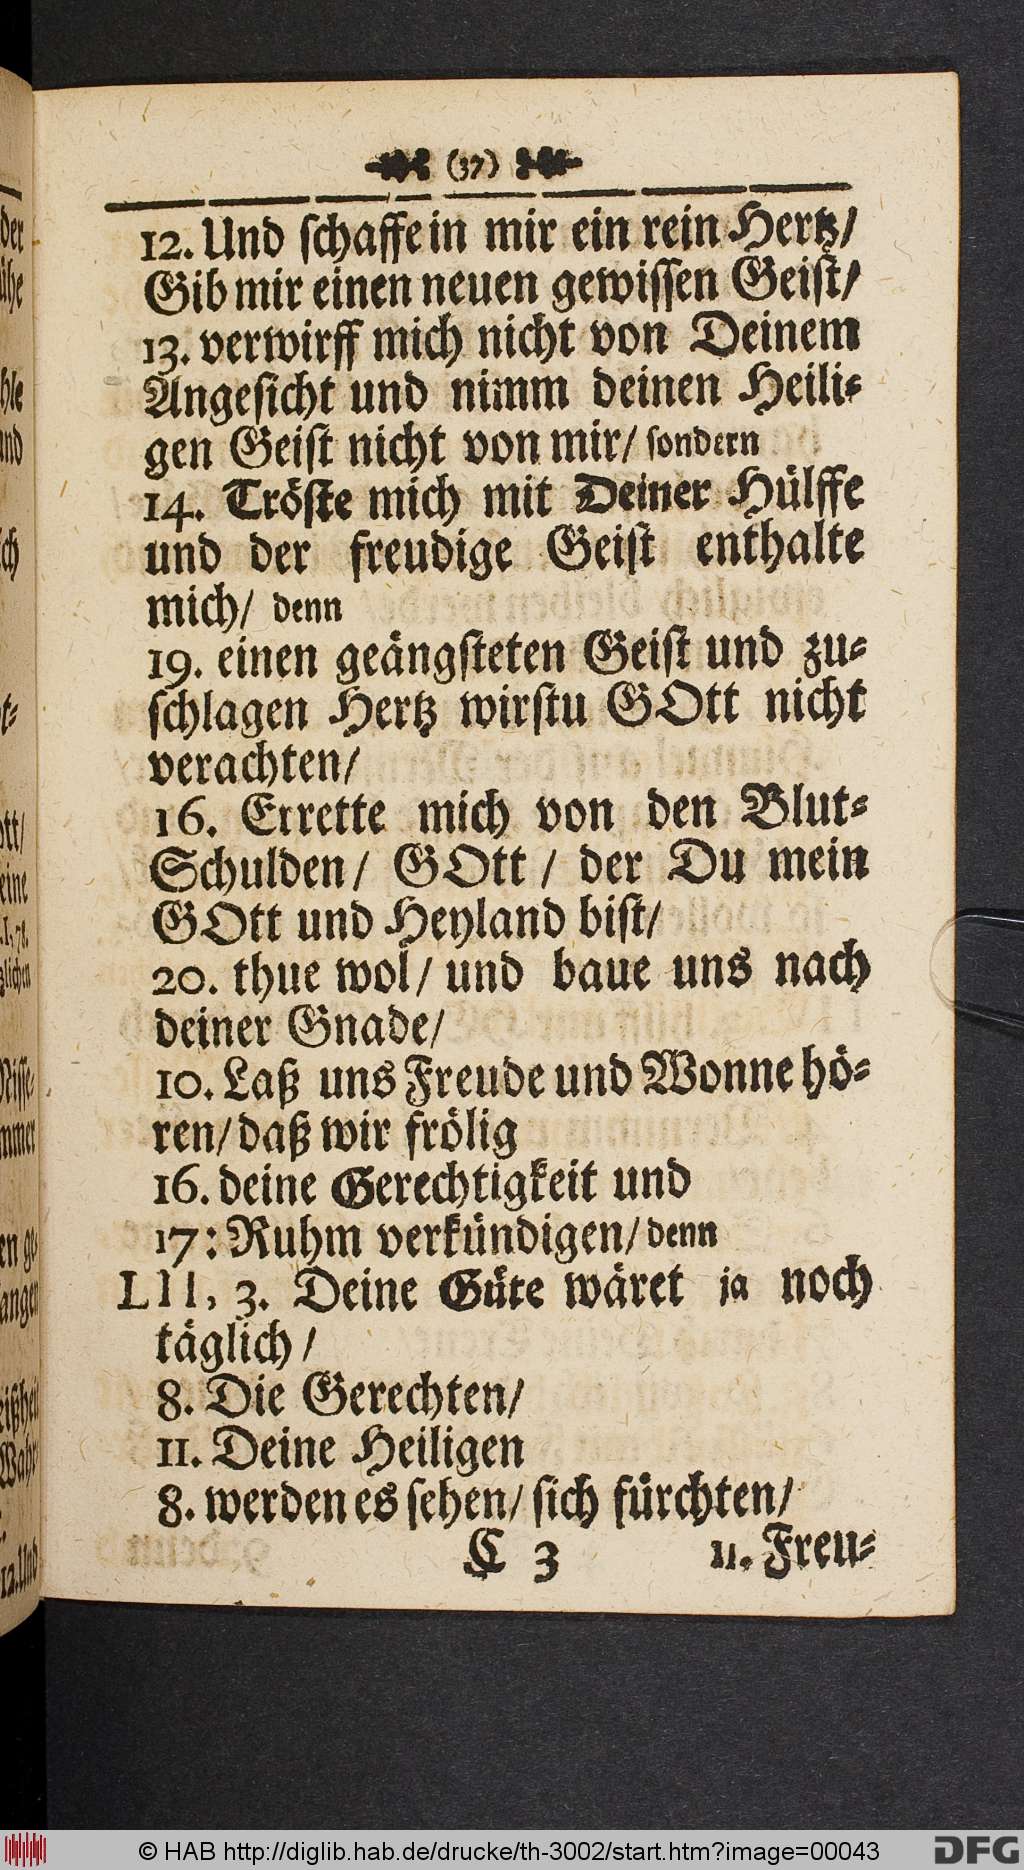 (37)
12. Und schaffe in mir ein rein Hertz/
Gib mir einen neuen gewissen Geist/
13. verwirff mich nicht von Deinem
Angesicht und nimm deinen Heili-
gen Geist nicht von mir/ sondern
14. Tröste mich mit Deiner Hülffe
und der freudige Geist enthalte
mich/ denn
19. einen geängsteten Geist und zu-
schlagen Hertz wirstu GOtt nicht
verachten/
16. Errette mich von den Blut-
Schulden/ GOtt / der Du mein
GOtt und Heyland bist/
20. thue wol/ und baue uns nach
deiner Gnade/
10. Laß uns Freude und Wonne hö-
ren/ daß wir frölig
16. deine Gerechtigkeit und
17: Ruhm verkündigen/ denn
LII, 3. Deine Güte wäret ja noch
täglich /
8. Die Gerechten/
11. Deine Heiligen
8. werden es sehen/ sich fürchten/
C 3 11. Freu-
© HAB http://diglib.hab.de/drucke/th-3002/start.htm?image=00043
DFG